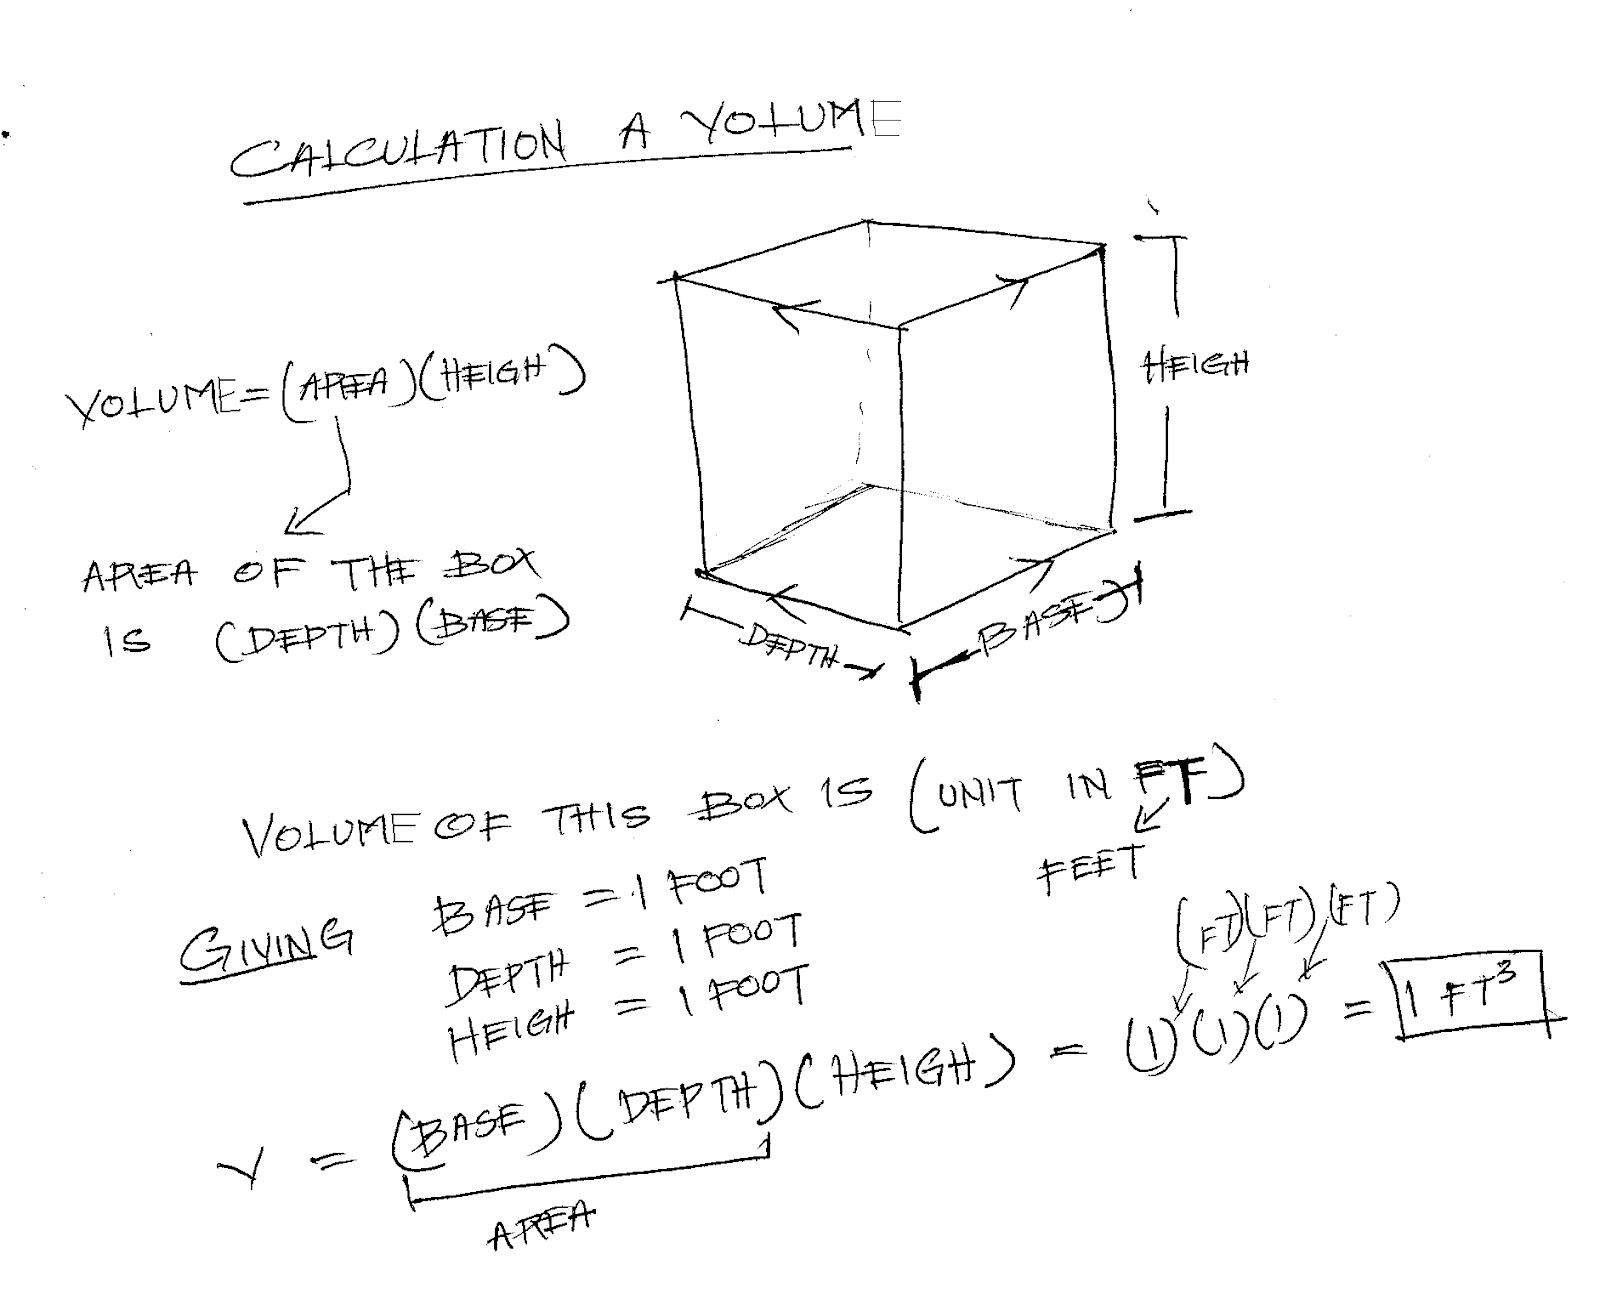 CALCULATION A VOLUME
VOLUME=(AREA)(HEIGH)
AREA OF THE BOX
IS (DEPTH)(BASE)
HEIGH
DEPTH
BASE
VOLUME OF THIS BOX IS (UNIT IN FT)
FEET
GIVING BASE = 1 FOOT
DEPTH = 1 FOOT
HEIGH = 1 FOOT
(FT)(FT)(FT)
V = (BASE)(DEPTH)(HEIGH) = (1)(1)(1) = 1 FT³
AREA